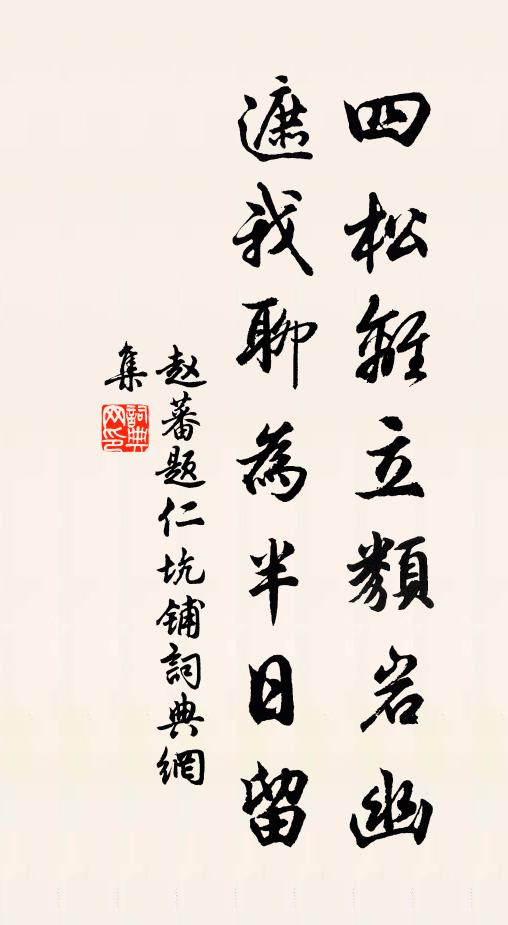 四松離立類岩幽
遮我聊為半日留
赵蕃題仁坑鋪詞典網
集
詞典網印